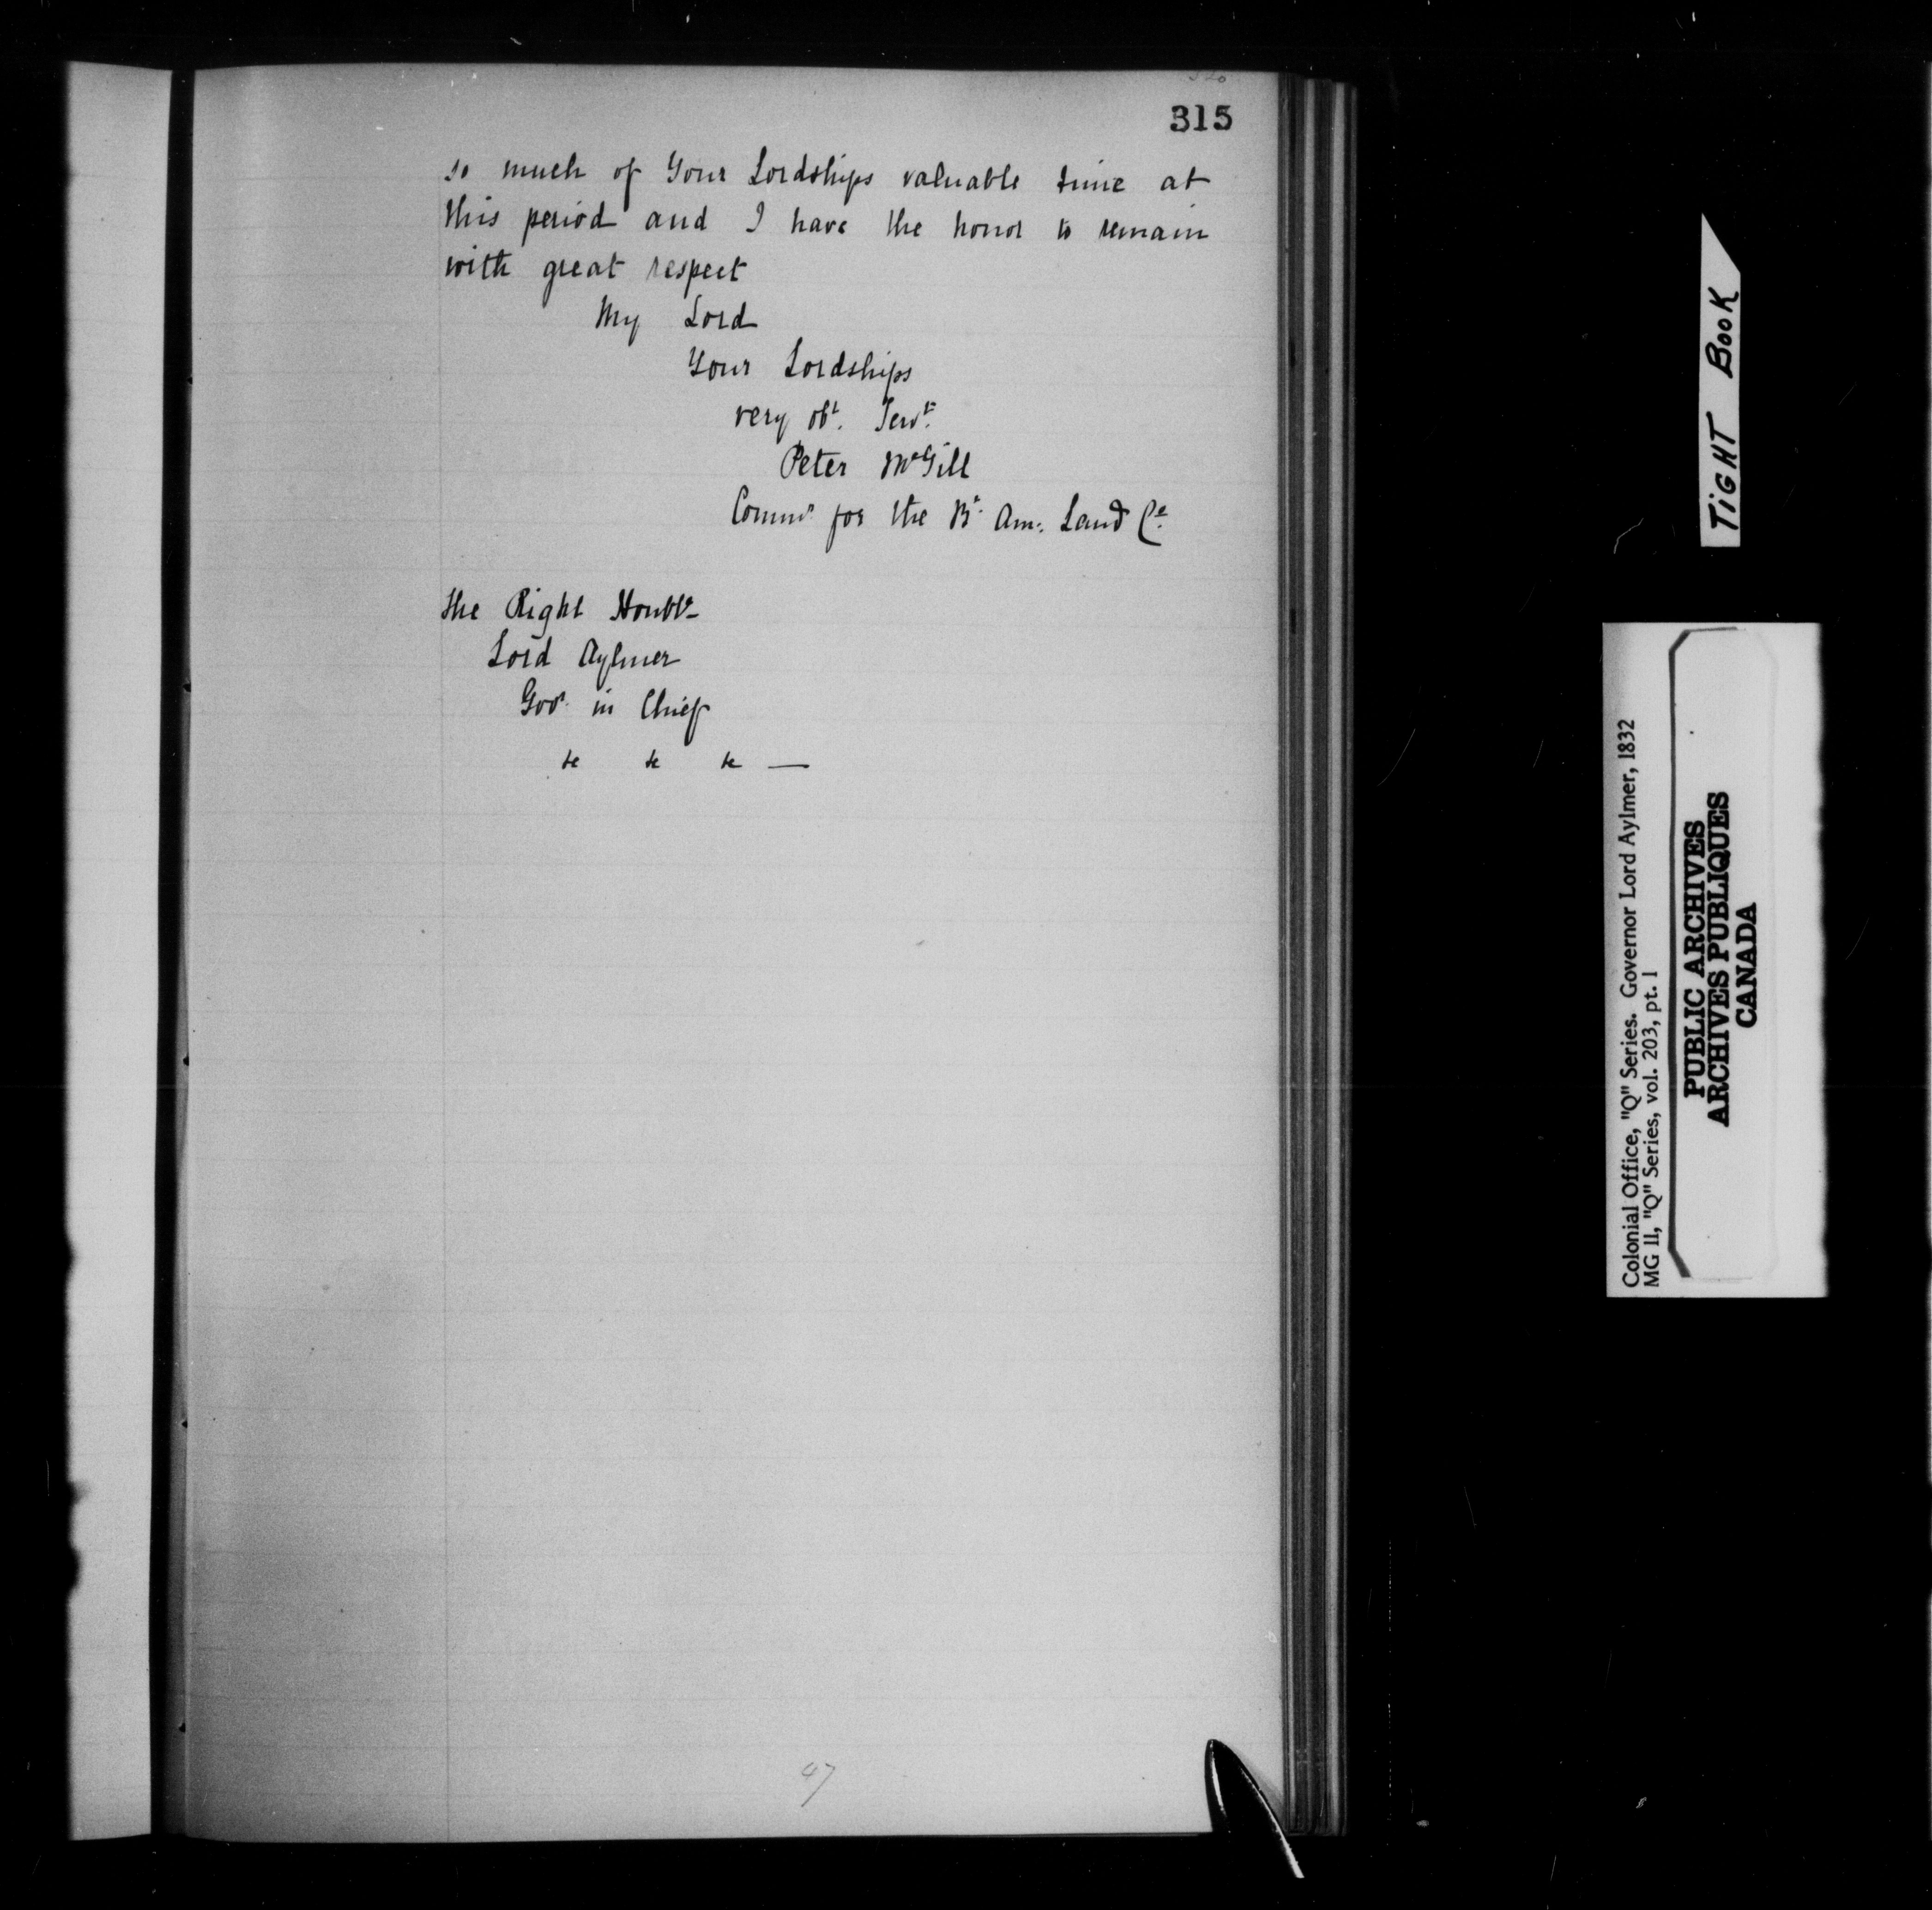 315
so much of Your Lordships valuable time at
this period and I have the honor to remain
with great respect
My Lord
Your Lordships
very obt. Servt.
Peter McGill
Commr for the Bt. Am: Land Co.
the Right Honble
Lord Aylmer
Govr. in Chief
&c &c &c —
47
TIGHT BOOK
Colonial Office, "Q" Series. Governor Lord Aylmer, 1832
MG 11, "Q" Series, vol. 203, pt. 1
PUBLIC ARCHIVES
ARCHIVES PUBLIQUES
CANADA